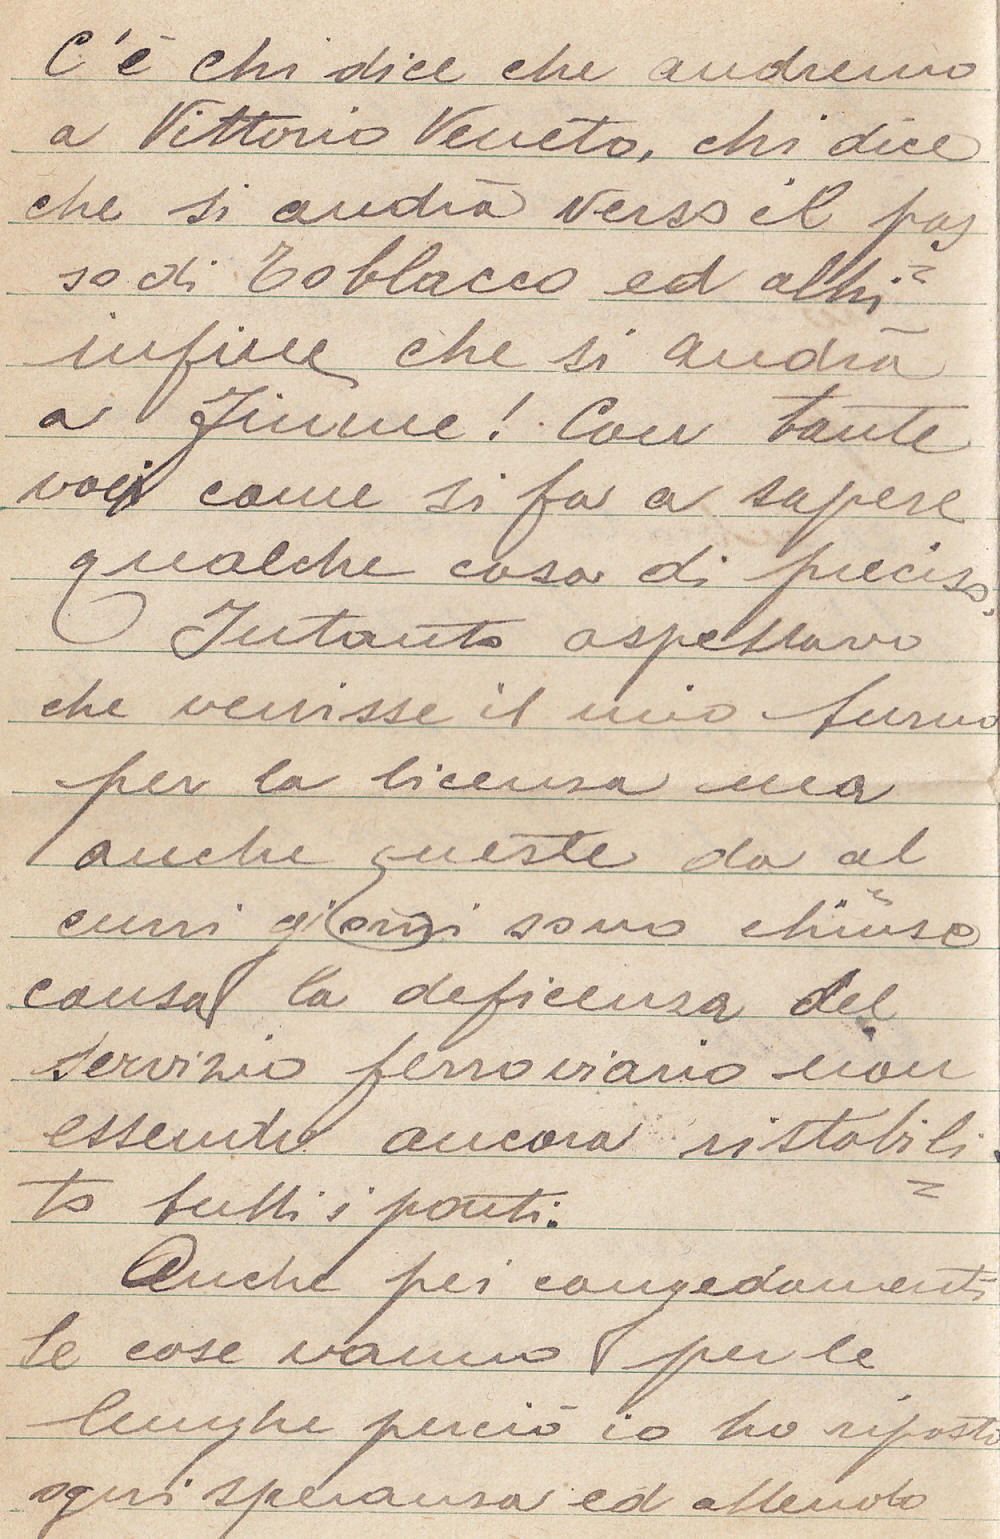 C'è chi dice che andremo
a Vittorio Veneto, chi dice
che si andrà verso il pas
so di Toblacco ed altri
infine che si andrà
a Fiume! Con tante
voci come si fa a sapere
qualche cosa di preciso,
Intanto aspettavo
che venisse il mio turno
per la licensa ma
anche queste da al
cuni giorni sono chiuse
causa la deficensa del
servizio ferroviario non
essendo ancora ristabili
to tutti i ponti.
Anche pei congedamenti
le cose vanno per le
lunghe perciò io ho riposto
ogni speransa ed attendo